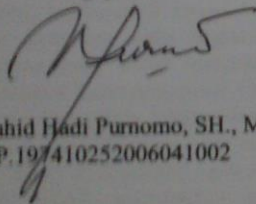 ahid Hadi Purnomo, SH., M
P.197410252006041002